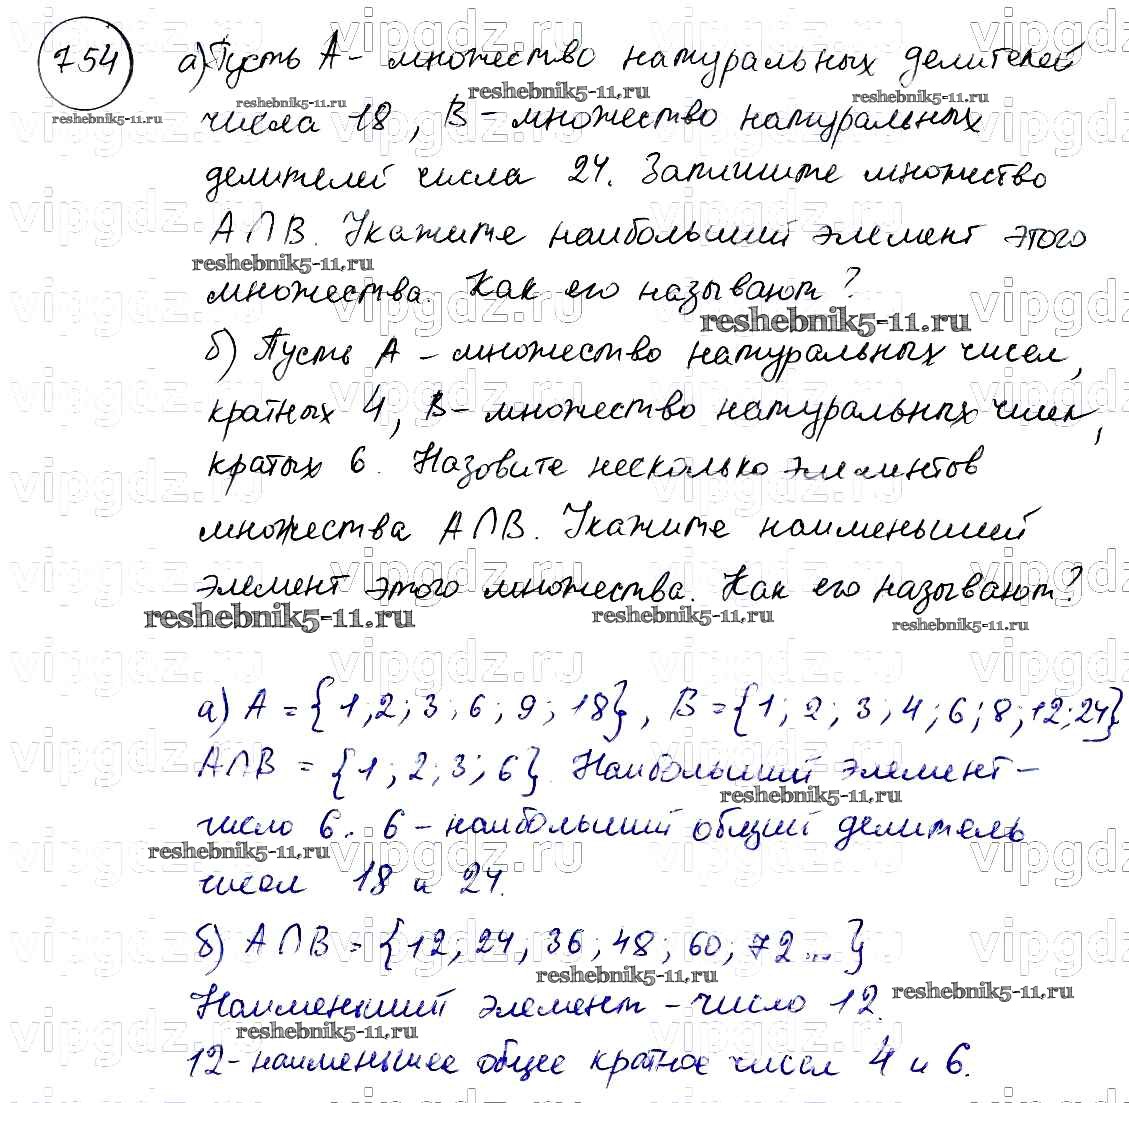 754 а) Пусть А - множество натуральных делителей
числа 18, В - множество натуральных
делителей числа 24. Запишите множество
А∩В. Укажите наибольший элемент этого
множества. Как его называют?
б) Пусть А - множество натуральных чисел,
кратных 4, В - множество натуральных чисел,
кратых 6. Назовите несколько элементов
множества А∩В. Укажите наименьший
элемент этого множества. Как его называют?
а) А = {1; 2; 3; 6; 9; 18}, В = {1; 2; 3; 4; 6; 8; 12; 24}
А∩В = {1; 2; 3; 6}. Наибольший элемент -
число 6. 6 - наибольший общий делитель
чисел 18 и 24.
б) А∩В = {12; 24; 36; 48; 60; 72...}
Наименьший элемент - число 12.
12 - наименьшее общее кратное чисел 4 и 6.